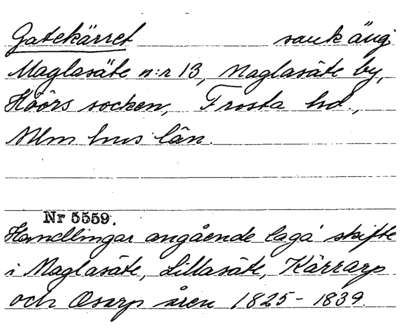 Gatekärret sank äng
Maglasäte n:r 13, Maglasäte by,
Höörs socken, Frosta hd.,
Mlm hus län.
Nr 5559.
Handlingar angående laga skifte
i Maglasäte, Lillasäte, Kärrarp
och Osarp åren 1825-1839